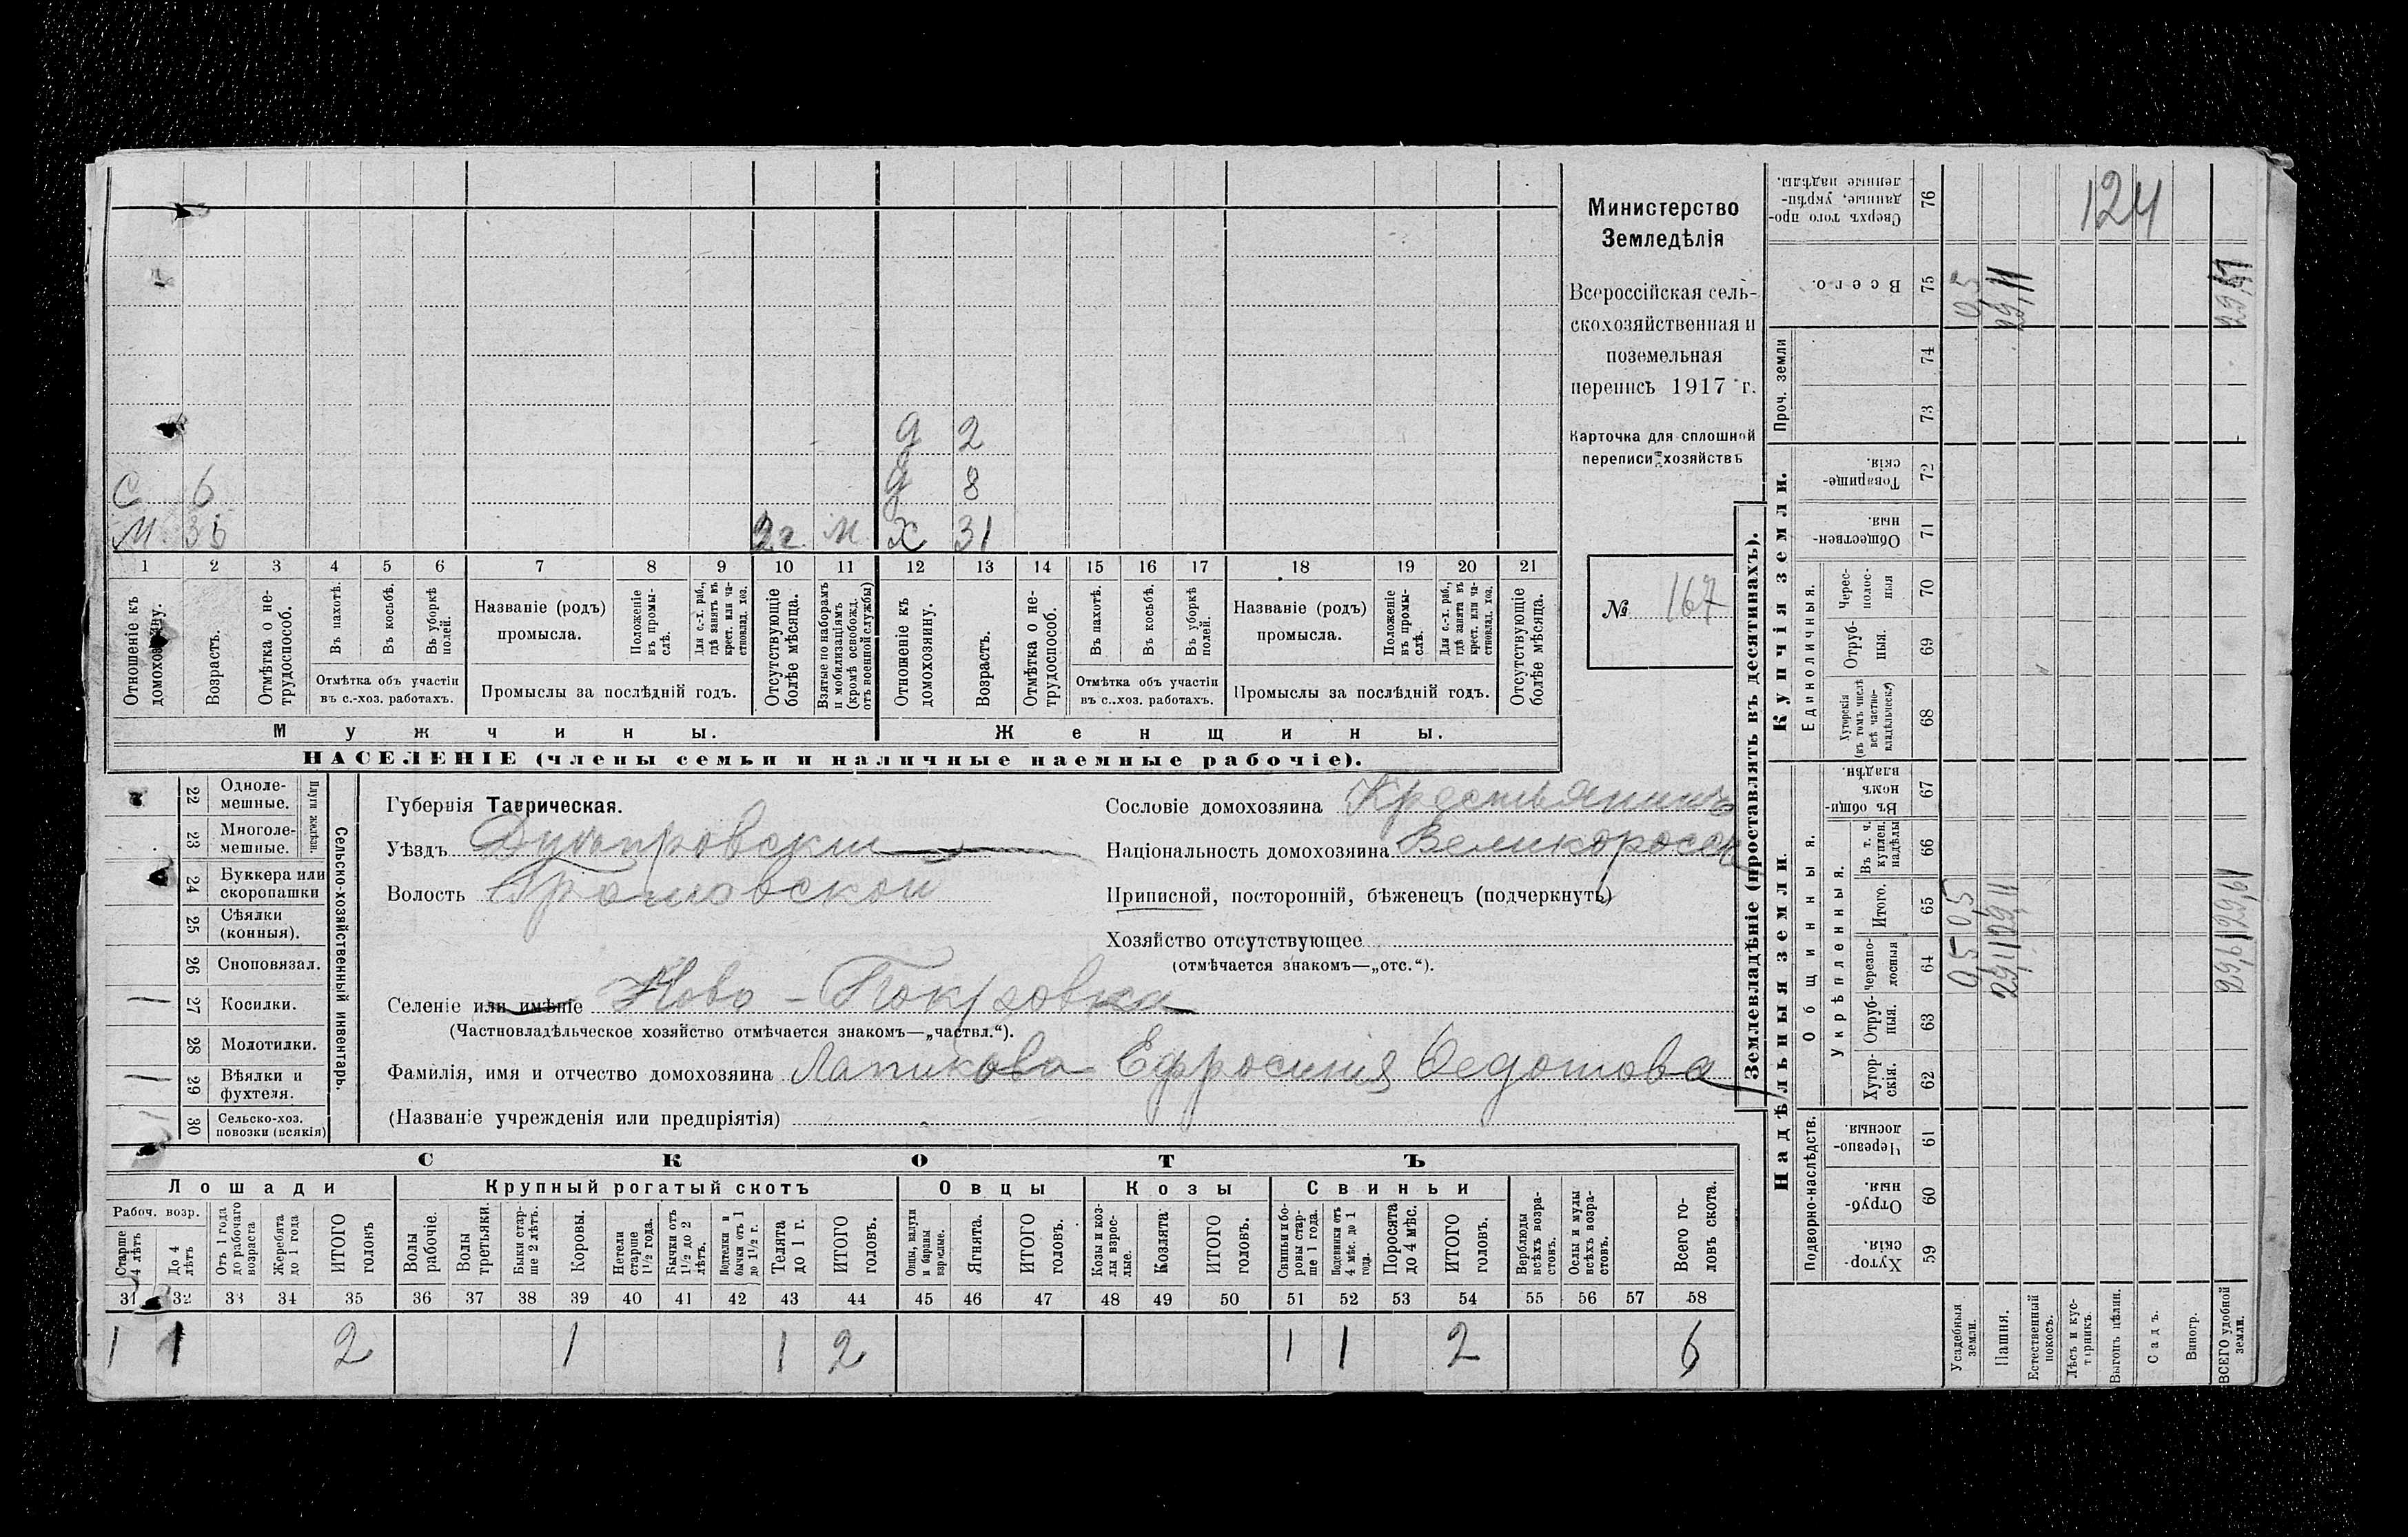 124
Министерство
Земледѣлія
Всероссійская сель-
скохозяйственная и
поземельная
перепись 1917 г.
Карточка для сплошной
переписи хозяйствъ
№ 167
д 2
С 6 д 8
М 35 2 г. м Х 31
1 2 3 4 5 6 7 8 9 10 11 12 13 14 15 16 17 18 19 20 21
Отношеніе къ домохозяину.
Возрастъ.
Отмѣтка о не-трудоспособ.
Въ пахотѣ.
Въ косьбѣ.
Въ уборкѣ полей.
Отмѣтка объ участіи
въ с.-хоз. работахъ.
Названіе (родъ)
промысла.
Положеніе въ промы-слѣ.
Для с.-х. раб., гдѣ занятъ въ крест. или ча-стновлад. хоз.
Промыслы за послѣдній годъ.
Отсутствующіе болѣе мѣсяца.
Взятые по наборамъ и мобилизаціямъ (кромѣ освобожд. отъ военной службы)
Отношеніе къ домохозяину.
Возрастъ.
Отмѣтка о не-трудоспособ.
Въ пахотѣ.
Въ косьбѣ.
Въ уборкѣ полей.
Отмѣтка объ участіи
въ с..хоз. работахъ.
Названіе (родъ)
промысла.
Положеніе въ промы-слѣ.
Для с.-х. раб., гдѣ занята въ крест. или ча-стновлад. хоз.
Промыслы за послѣдній годъ.
Отсутствующіе болѣе мѣсяца.
Мужчины. Женщины.
НАСЕЛЕНІЕ (члены семьи и наличные наемные рабочіе).
Сельско-хозяйственный инвентарь.
Плуги желѣзн.
22 Одноле-мешные.
23 Многоле-мешные.
24 Буккера или скоропашки
25 Сѣялки (конныя).
26 Сноповязал.
1 27 Косилки.
28 Молотилки.
1 29 Вѣялки и фухтеля.
1 30 Сельско-хоз. повозки (всякія)
Губернія Таврическая.
Уѣздъ Днѣпровскій
Волость
Селеніе или имѣніе Ново-Покровка
(Частновладѣльческое хозяйство отмѣчается знакомъ—„частвл.“).
Фамилія, имя и отчество домохозяина Лапикова Ефросинія Федотова
(Названіе учрежденія или предпріятія)
Сословіе домохозяина Крестьянинъ
Національность домохозяина Великороссъ
Приписной, посторонній, бѣженецъ (подчеркнуть)
Хозяйство отсутствующее
(отмѣчается знакомъ—„отс.“).
СКОТЪ
Лошади Крупный рогатый скотъ Овцы Козы Свиньи
Рабоч. возр.
Старше 4 лѣтъ
До 4 лѣтъ
Отъ 1 года до рабочаго возраста
Жеребята до 1 года
ИТОГО головъ
Волы рабочіе.
Волы третьяки.
Быки стар-ше 2 лѣтъ.
Коровы.
Нетели старше 1½ года.
Бычки отъ 1½ до 2 лѣтъ.
Подтелки и бычки отъ 1 до 1½ г.
Телята до 1 г.
ИТОГО головъ.
Овцы, валухи и бараны взрослые.
Ягнята.
ИТОГО головъ.
Козы и коз-лы взрос-лые.
Козлята
ИТОГО головъ.
Свиньи и бо-ровы стар-ше 1 года.
Подсвинки отъ 4 мѣс. до 1 года.
Поросята до 4 мѣс.
ИТОГО головъ.
Верблюды всѣхъ возра-стовъ.
Ослы и мулы всѣхъ возра-стовъ.
Всего го-ловъ скота.
31 32 33 34 35 36 37 38 39 40 41 42 43 44 45 46 47 48 49 50 51 52 53 54 55 56 57 58
1 1 2 1 1 2 1 1 2 6
Землевладѣніе (проставлять въ десятинахъ).
Надѣльныя земли.
Купчія земли.
Проч. земли
Подворно-наслѣдств.
Общинныя.
Укрѣпленныя.
Единоличныя.
59 Хутор-скія.
60 Отруб-ныя.
61 Черезпо-лосныя
62 Хутор-скія.
63 Отруб-ныя.
64 Черезпо-лосныя
65 Итого.
66 Въ т. ч. куплен. надѣлы
67 Въ общи-номъ владѣн.
68 Хуторскія (въ томъ числѣ всѣ частно-владѣльческ.)
69 Отруб-ныя.
70 Черес-полос-ныя
71 Обществен-ныя.
72 Товарище-скія.
73
74
75 Всего.
76 Сверхъ того про-данные, укрѣп-ленные надѣлы.
Усадебныя земли. 0,5 0,5 0,5
Пашня. 29,11 29,11 29,11
Естественный покосъ.
Лѣсъ и кус-тарникъ.
Выгонъ цѣлин.
Садъ.
Виногр.
ВСЕГО удобной земли. 29,61 29,61